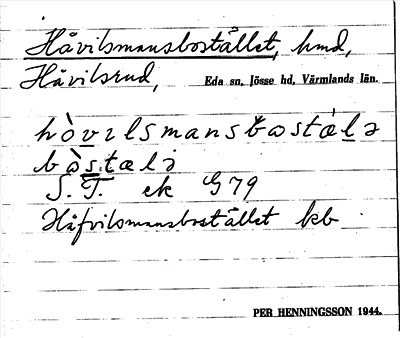 Håvilsmansbostället, hmd,
Håvilsrud, Eda sn, Jösse hd, Värmlands län.
hòvɪlsmansbostálə
bòstælə
S. T. ek G 79
Håfvilsmansbostället kb
PER HENNINGSSON 1944.